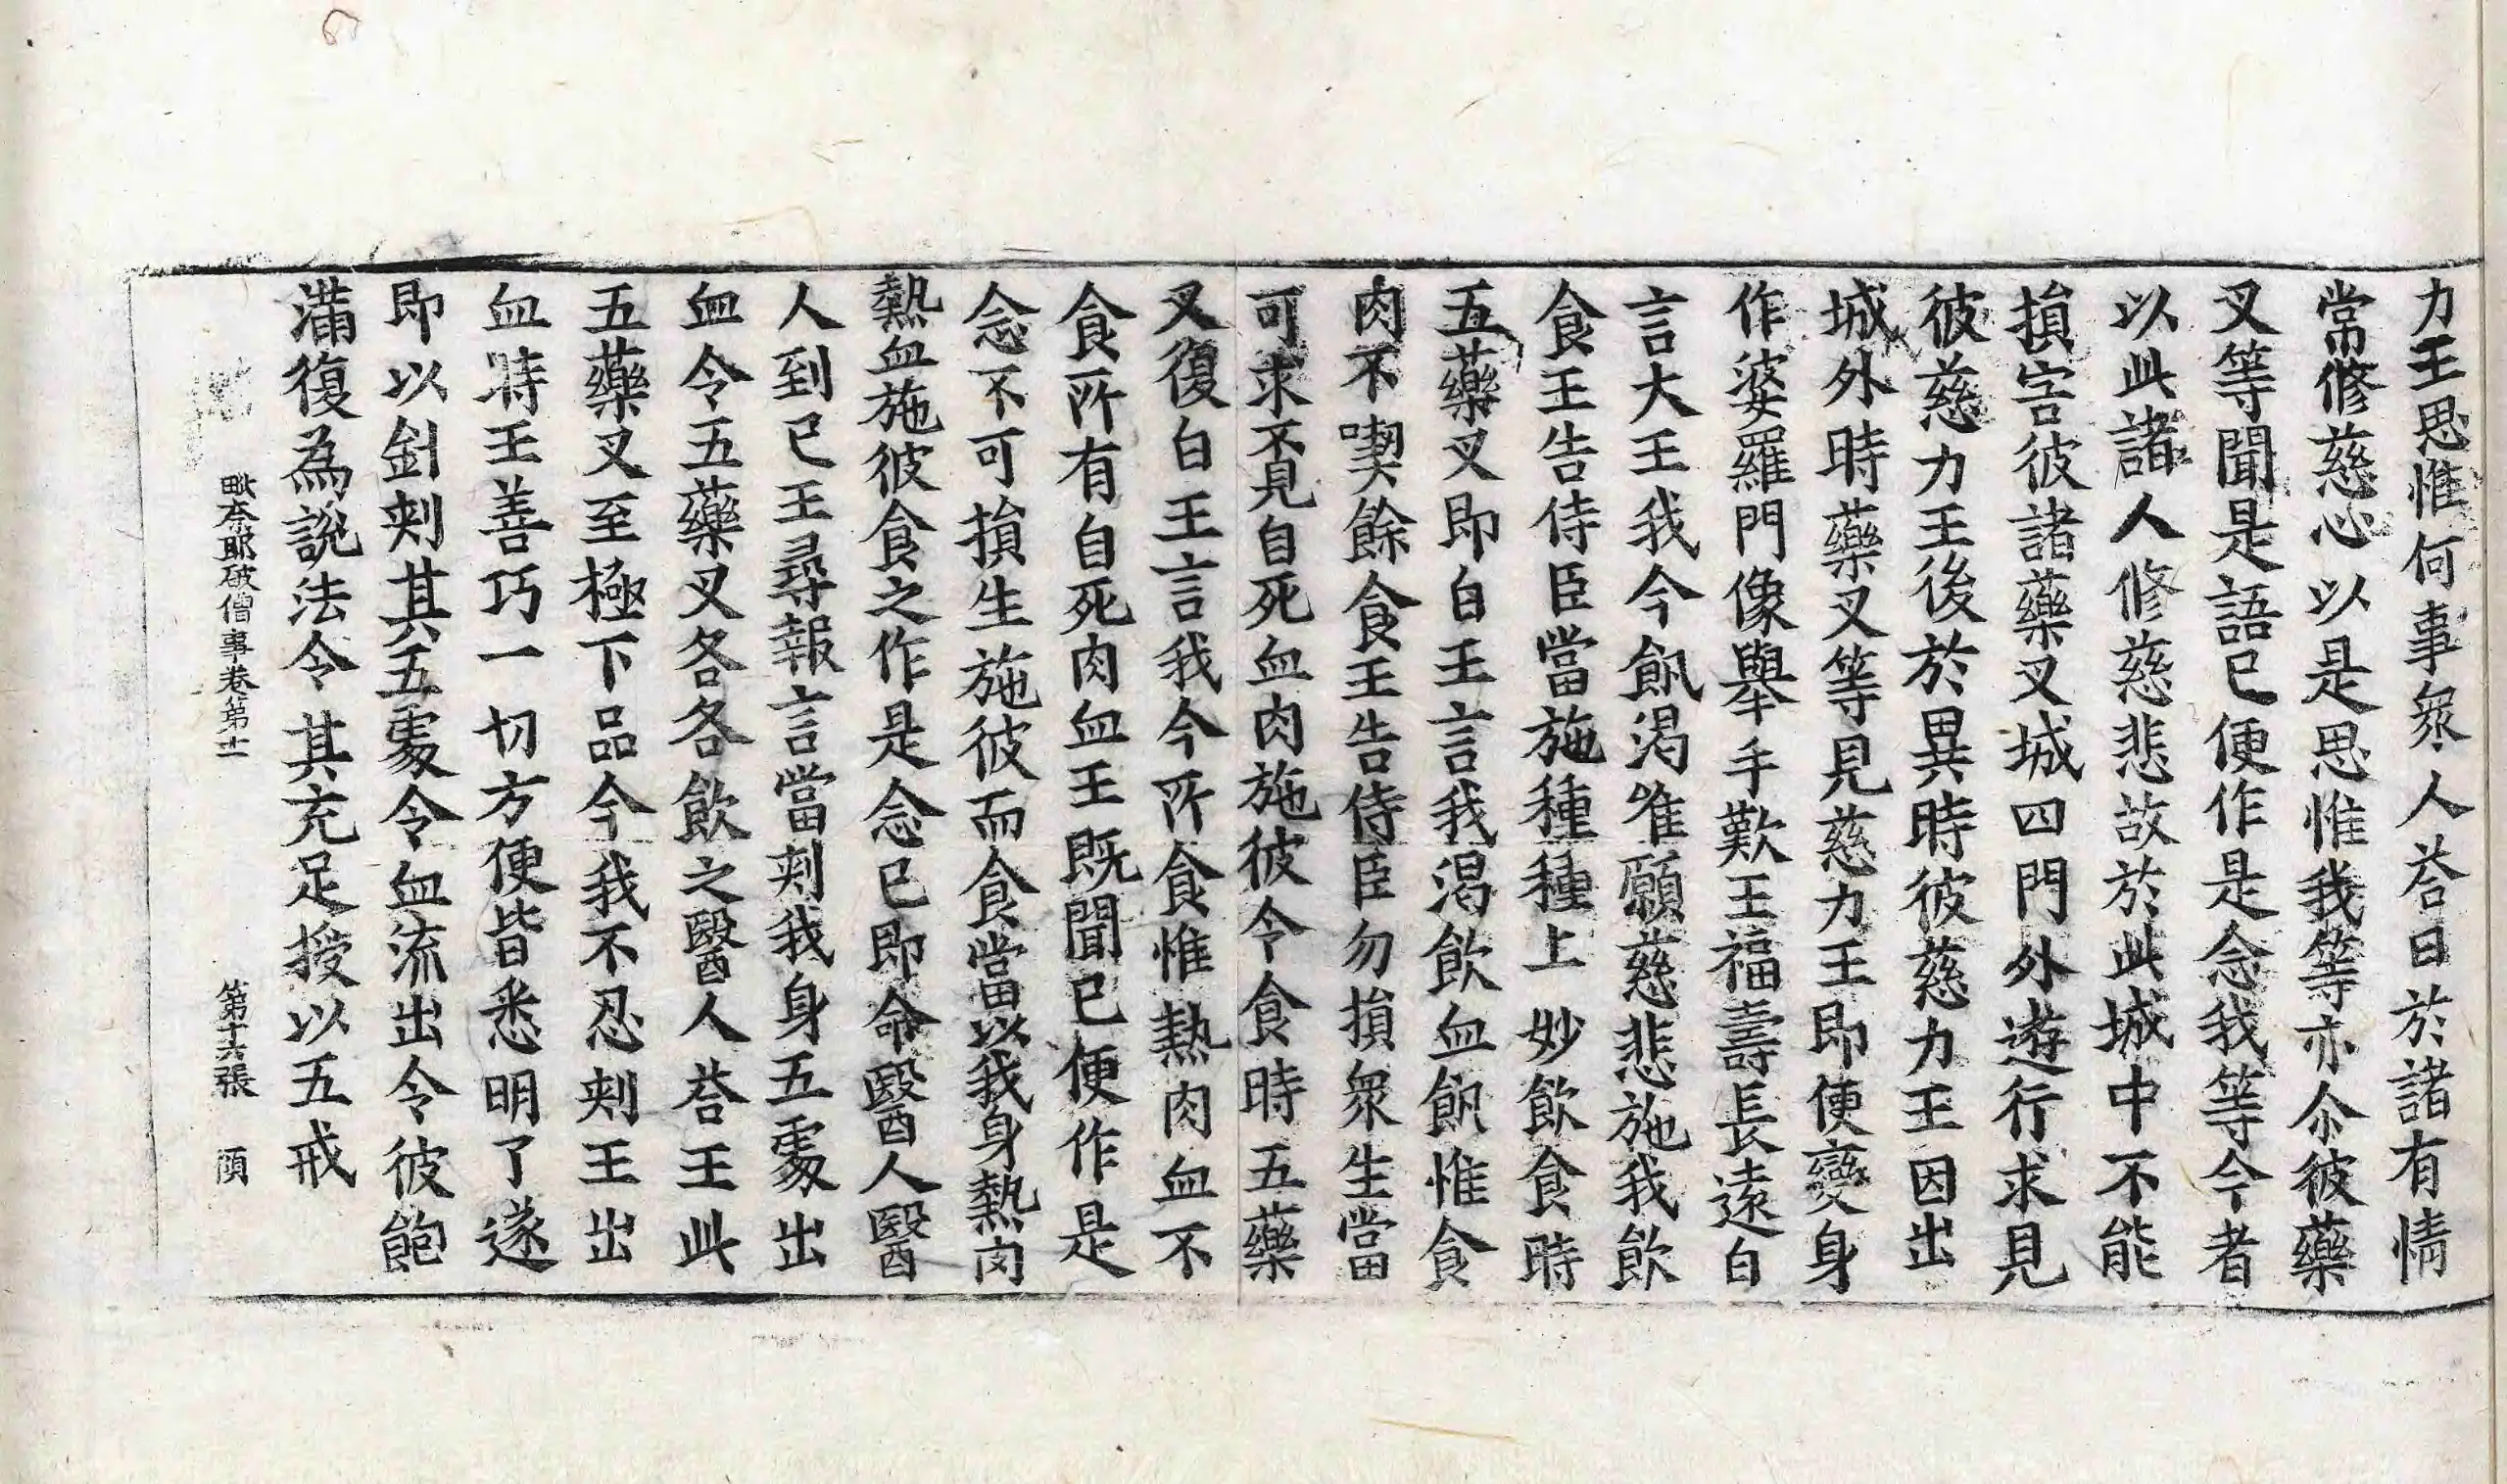 力王思惟何事衆人荅曰於諸有情
常修慈心以是思惟我等亦尒彼藥
叉等聞是語已便作是念我等今者
以此諸人修慈悲故於此城中不能
損害彼諸藥叉城四門外遊行求見
彼慈力王後於異時彼慈力王因出
城外時藥叉等見慈力王即便變身
作婆羅門像舉手歎王福壽長遠白
言大王我今飢渴唯願慈悲施我飲
食王告侍臣當施種種上妙飲食時
五藥叉即白王言我渴飲血飢惟食
肉不喫餘食王告侍臣勿損衆生當
可求覓自死血肉施彼令食時五藥
叉復白王言我今所食惟熱肉血不
食所有自死肉血王既聞已便作是
念不可損生施彼而食當以我身熱肉
熱血施彼食之作是念已即命醫人醫
人到已王尋報言當刾我身五處出
血令五藥叉各各飲之醫人荅王此
五藥叉至極下品今我不忍刾王出
血時王善巧一切方便皆悉明了遂
即以針刾其五處令血流出令彼飽
滿復為說法令其充足授以五戒
毗奈耶破僧事卷第十一 第十六張 須